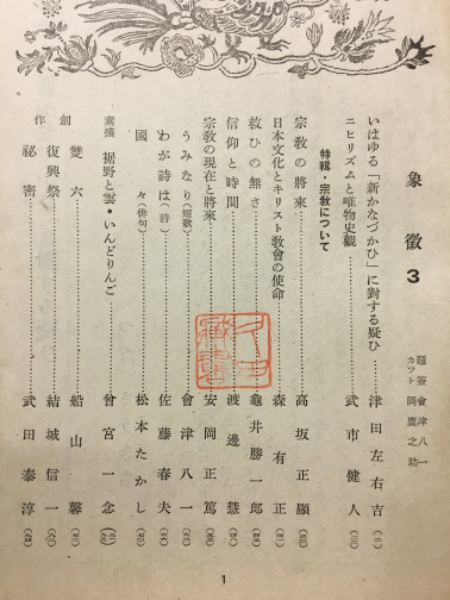 象徴 3
題簽 會津八一
カツト 岡鹿之助
いはゆる「新かなづかひ」に對する疑ひ……津田左右吉(二)
ニヒリズムと唯物史觀……武市健人
特輯・宗教について
宗教の將來……高坂正顯
日本文化とキリスト教會の使命……森有正
救ひの無さ……龜井勝一郎
信仰と時間……渡邊慧
宗教の現在と將來……安岡正篤
うみなり(短歌)……會津八一
わが詩は(詩)……佐藤春夫
國々(俳句)……松本たかし
素描 裾野と雲・いんどりんご……曾宮一念
創作
雙六……船山馨
復興祭……結城信一
祕密……武田泰淳
1